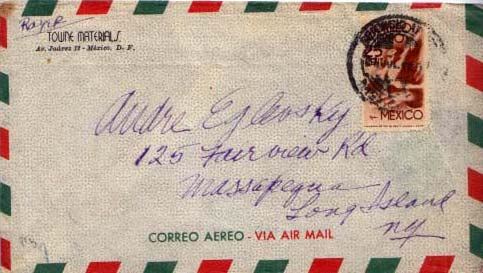 Rayie
TOWNE MATERIALS
Av. Juárez 13 - México, D. F.
25
MEXICO
Andre Eglevsky
125 Fairview Rd
Massapequa
Long Island
NY
CORREO AEREO - VIA AIR MAIL